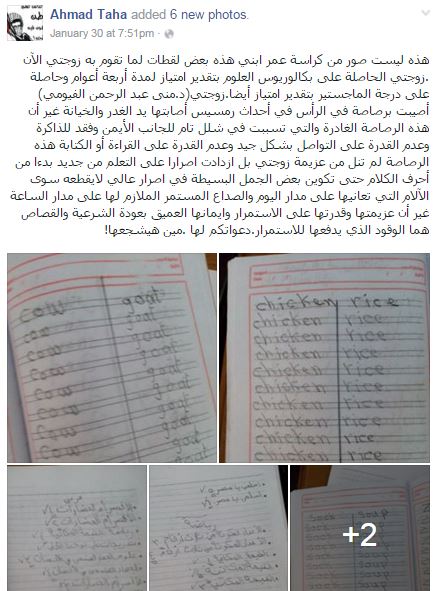 Ahmad Taha added 6 new photos.
January 30 at 7:51pm
هذه ليست صور من كراسة عمر ابني هذه بعض لقطات لما تقوم به زوجتي الآن
.زوجتي الحاصلة على بكالوريوس العلوم بتقدير امتياز لمدة أربعة أعوام وحاصلة
على درجة الماجستير بتقدير امتياز أيضا.زوجتي(د.منى عبد الرحمن الفيومي)
أصيبت برصاصة في الرأس في أحداث رمسيس أصابتها يد الغدر والخيانة غير أن
هذه الرصاصة الغادرة والتي تسببت في شلل تام للجانب الأيمن وفقد للذاكرة
وعدم القدرة على التواصل بشكل جيد وعدم القدرة على القراءة أو الكتابة هذه
الرصاصة لم تنل من عزيمة زوجتي بل ازدادت اصرارا على التعلم من جديد بدءا من
أحرف الكلام حتى تكوين بعض الجمل البسيطة في اصرار عالي لايقطعه سوى
الآلام التي تعانيها على مدار اليوم والصداع المستمر الملازم لها على مدار الساعة
غير أن عزيمتها وقدرتها على الاستمرار وايمانها العميق بعودة الشرعية والقصاص
هما الوقود الذي يدفعها للاستمرار.دعواتكم لها .مين هيشجعها!
cow goat
cow goat
cow goat
cow goat
cow goat
cow goat
cow goat
cow goat
chicken rice
chicken rice
chicken rice
chicken rice
chicken rice
chicken rice
chicken rice
chicken rice
chicken rice
chicken rice
sock soup
+2